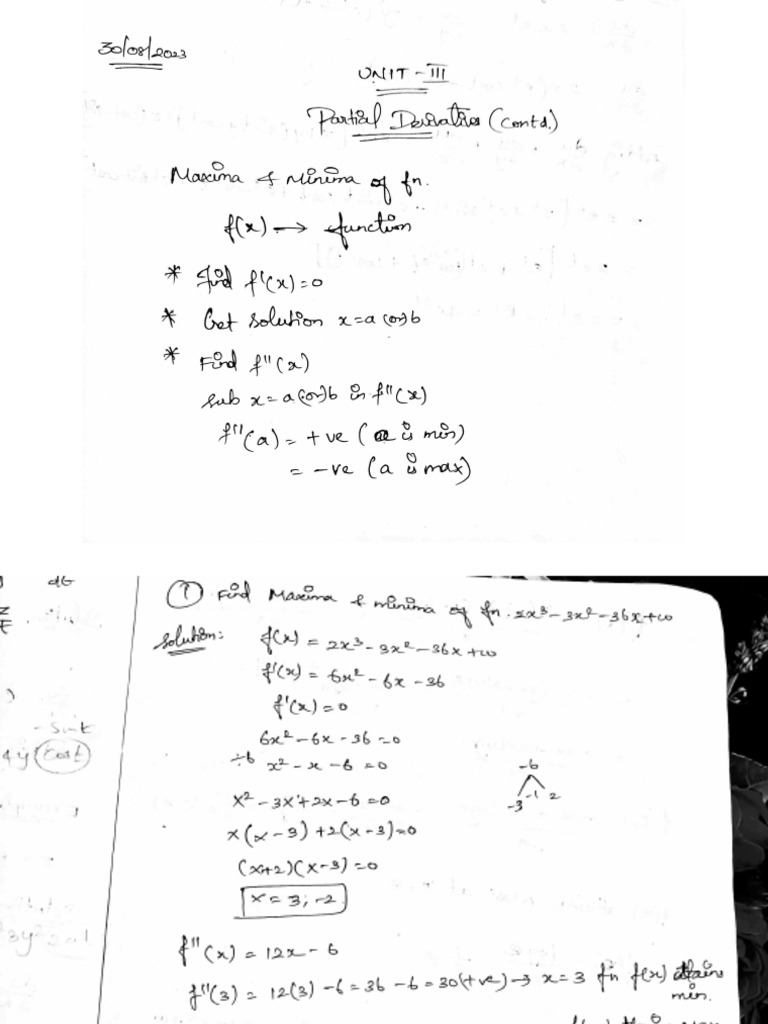 30/08/2023
UNIT - III
Partial Derivatives (Contd.)
Maxima & Minima of fn.
f(x) → function
* Find f'(x)=0
* Get solution x=a (or) b
* Find f''(x)
sub x=a (or) b in f''(x)
f''(a) = +ve (a is min)
= -ve (a is max)
① Find Maxima & minima of fn. 2x³-3x²-36x+10
Solution: f(x) = 2x³-3x²-36x+10
f'(x) = 6x²-6x-36
f'(x)=0
6x²-6x-36=0
÷6 x²-x-6=0
-6
-3 -1 2
x²-3x+2x-6=0
x(x-3)+2(x-3)=0
(x+2)(x-3)=0
x=3,-2
f''(x) = 12x-6
f''(3) = 12(3)-6=36-6=30(+ve)→ x=3 fn f(x) attains
min.
-sint
4y cost